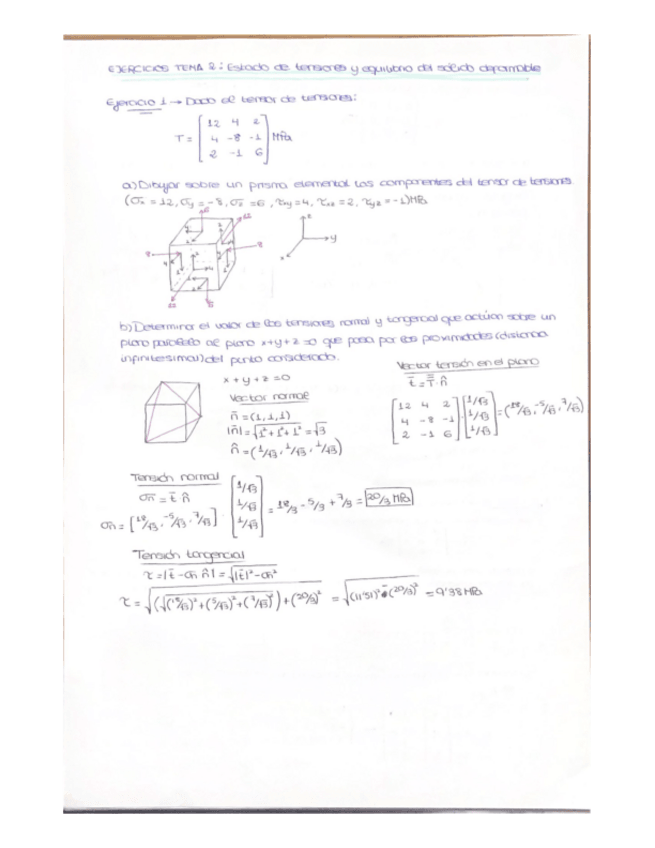 EJERCICIOS TEMA 2: Estado de tensiones y equilibrio del sólido deformable
Ejercicio 1 → Dado el tensor de tensiones:
T = [12 4 2; 4 -8 -1; 2 -1 6] MPa
a) Dibujar sobre un prisma elemental las componentes del tensor de tensiones
(σx = 12, σy = -8, σz = 6, τxy = 4, τxz = 2, τyz = -1) MPa
z
y
x
b) Determinar el valor de las tensiones normal y tangencial que actúan sobre un
plano paralelo al plano x+y+z=0 que pasa por las proximidades (distancia
infinitesimal) del punto considerado.
x+y+z=0
Vector normal
n̄ = (1,1,1)
|n̄| = √1²+1²+1² = √3
n̂ = (1/√3, 1/√3, 1/√3)
Vector tensión en el plano
t̄ = T̿·n̂
[12 4 2; 4 -8 -1; 2 -1 6]·[1/√3; 1/√3; 1/√3] = (18/√3, -5/√3, 7/√3)
Tensión normal
σn = t̄ n̂
σn = [18/√3, -5/√3, 7/√3] · [1/√3; 1/√3; 1/√3] = 18/3 - 5/3 + 7/3 = 20/3 MPa
Tensión tangencial
τ = |t̄ - σn n̂| = √|t̄|² - σn²
τ = √(√(18/√3)² + (5/√3)² + (7/√3)²) + (20/3)² = √(11'51)² - (20/3)² = 9'38 MPa